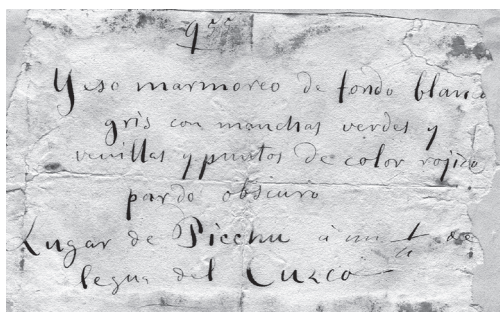 Yeso marmoreo de fondo blanco
gris con manchas verdes y
venillas y puntos de color rojizo
pardo obscuro
Lugar de Picchu à un 1/4 de
legua del Cuzco